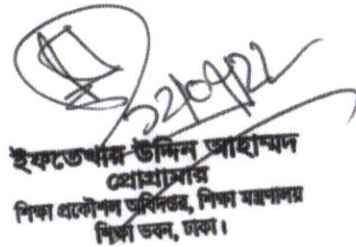 ১২/০৭/২২
ইফতেখার উদ্দিন আহাম্মদ
প্রোগ্রামার
শিক্ষা প্রকৌশল অধিদপ্তর, শিক্ষা মন্ত্রণালয়
শিক্ষা ভবন, ঢাকা।